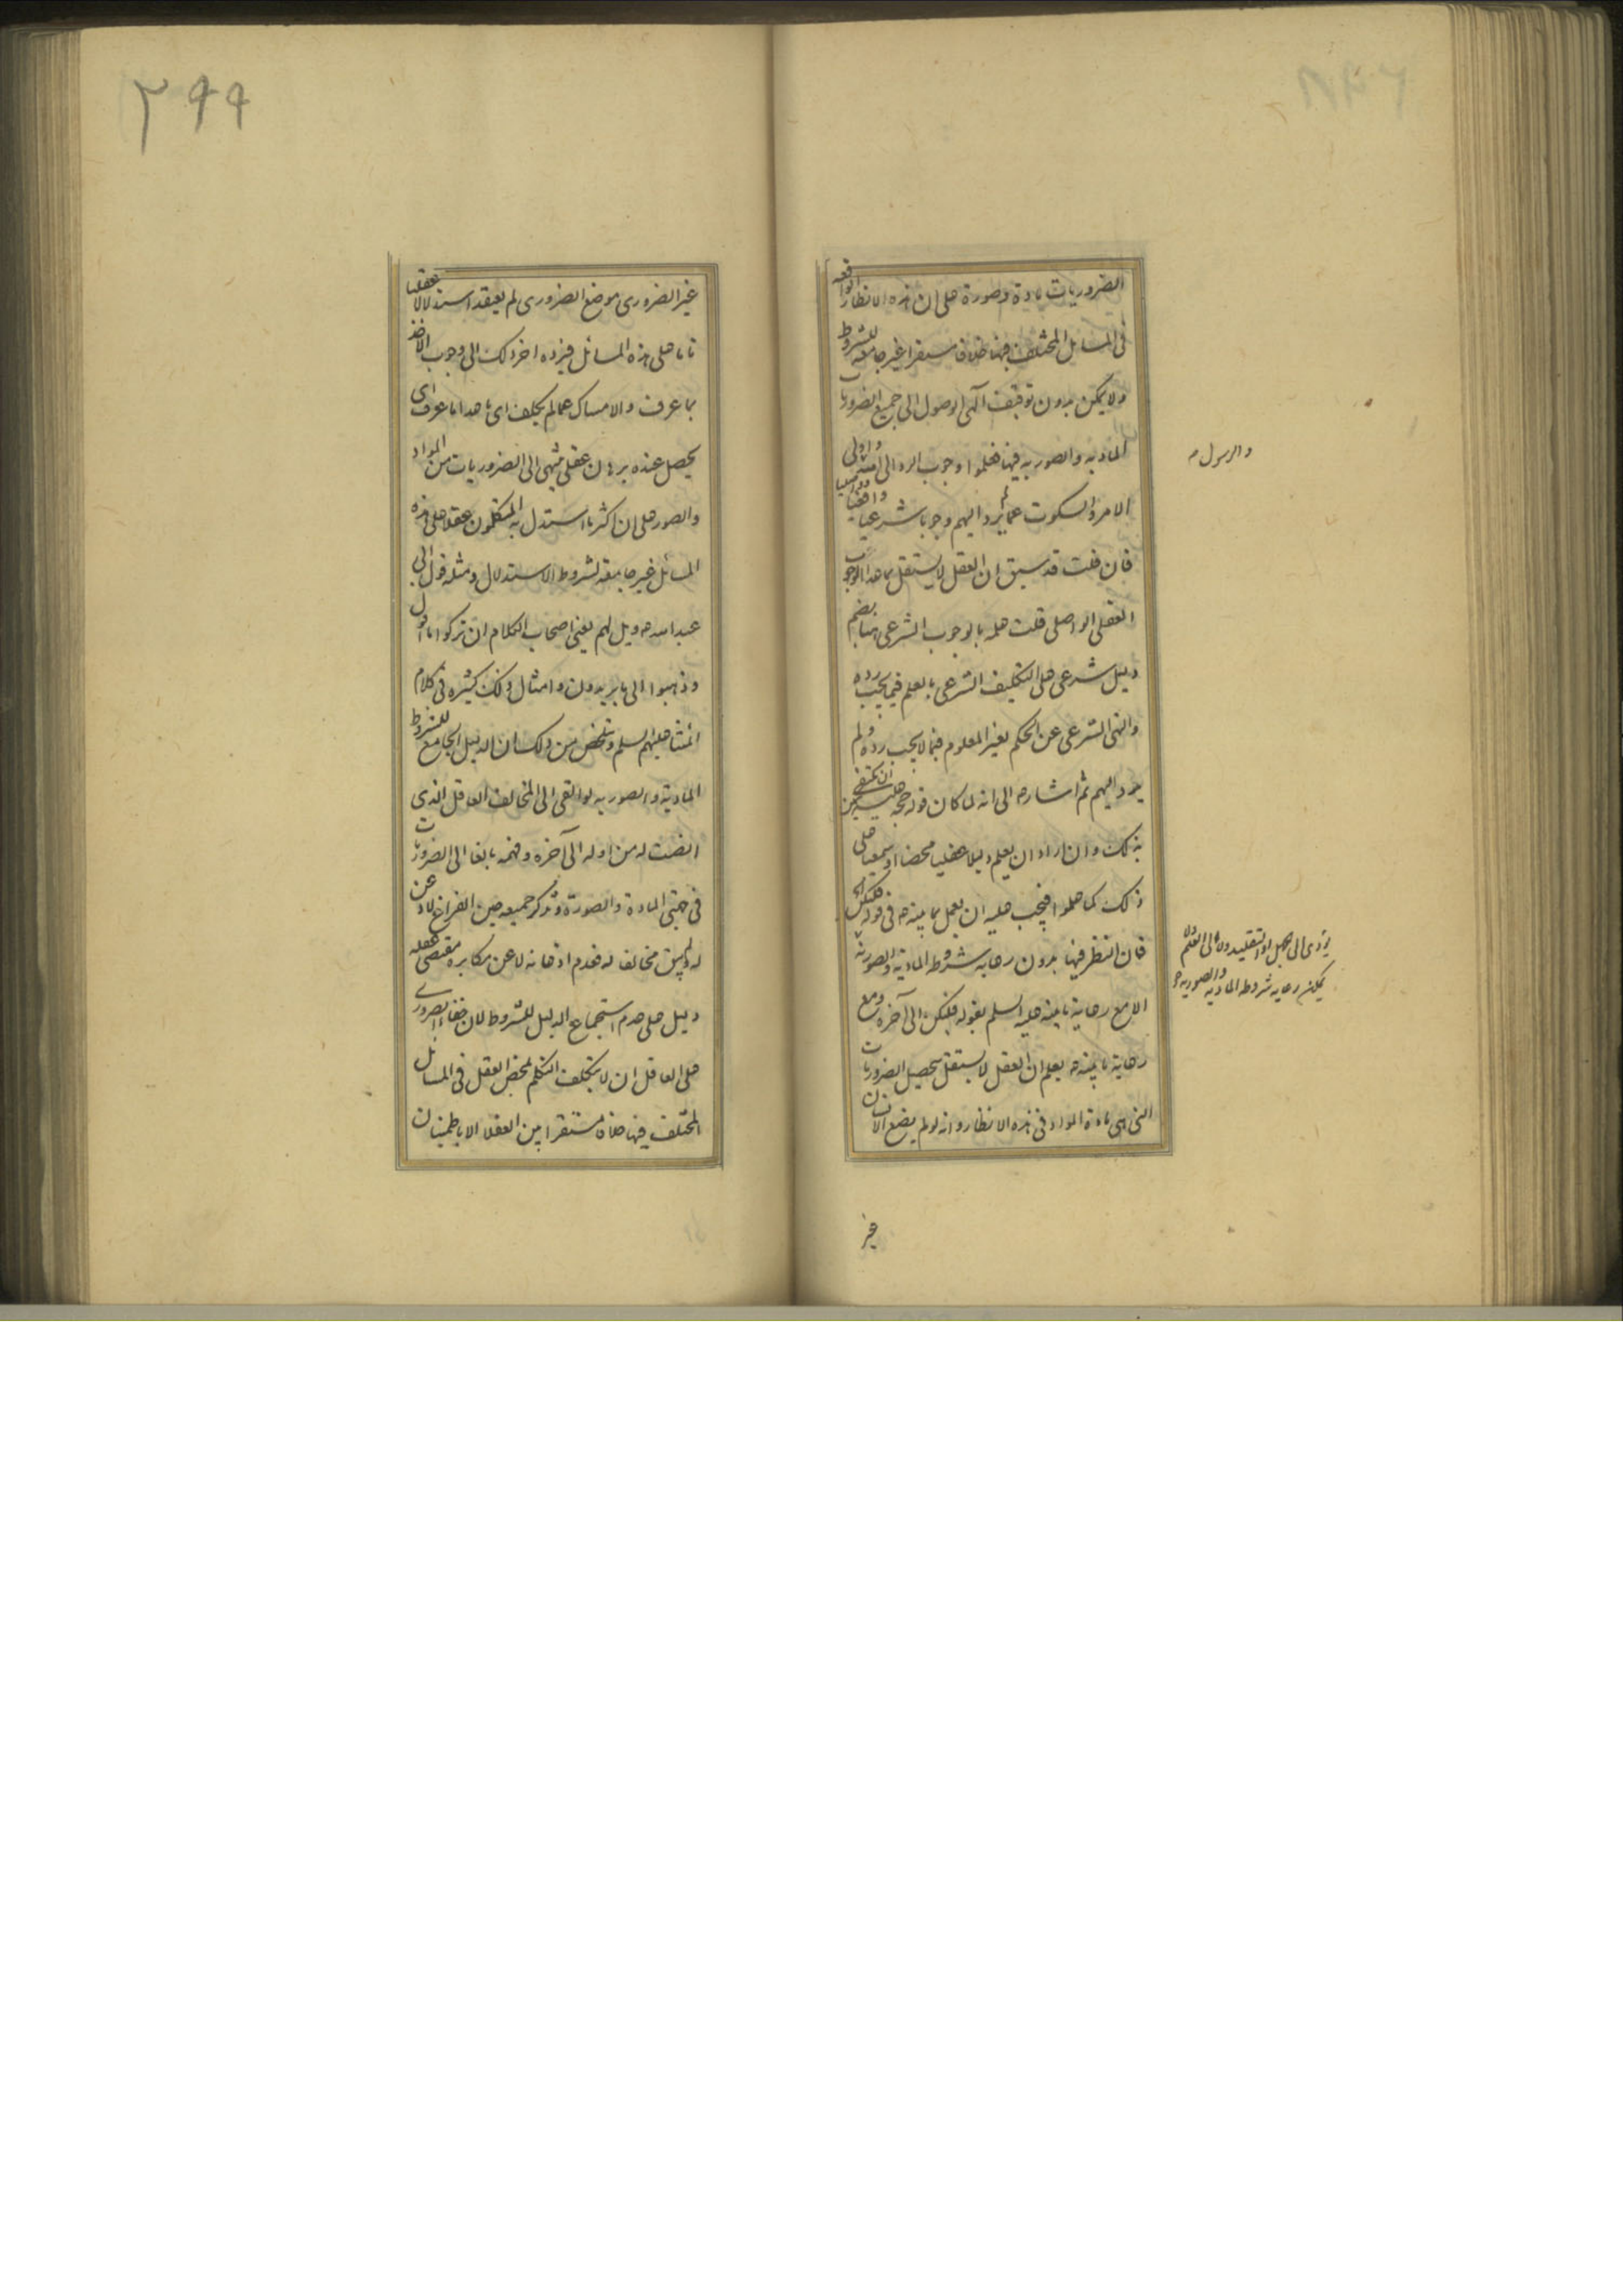 الضروريات مادة وصورة على ان هذه الانظار الواقعه
فى المسائل المختلف فيها خلافا مستقرا غير جامعه للشروط
ولا يمكن بدون توقيف آلهى الوصول الى جميع الضروريات
المادية والصوريه فيها فعلموا وجوب الرد الى الله واولى
والرسول م
الامر والسكوت عما لم يرد اليهم وجوبا شرعيا
فان قلت قد سبق ان العقل لا يستقل بما هذا الوجوب
العقلى الواصلى قلت علم بالوجوب الشرعى هنا بضم
دليل شرعى على التكليف الشرعى بالعلم فيما يجب رده
والنهى الشرعى عن الحكم بغير المعلوم فيما لا يجب رده ولم
يرد اليهم ثم اشار م الى انه لما كان قوله حجه عليه ان يكتفى
بذلك وان اراد ان يعلم دليلا عقليا محضا او سمعيا على
ذلك كما علموا فيجب عليه ان يعمل بما بينه م فى قوله فليكن
فان النظر فيها بدون رعايه شروطه الماديه والصوريه
يؤدى الى جهل او تقليد ولا الى العلم ولا
يمكن رعايه شروطه الماديه والصوريه
الا مع رعاية ما بينه عليه السلم بقوله فليكن الى آخره ومع
رعاية ما بينه م يعلم ان العقل لا يستقل بتحصيل الضروريات
التى هى مادة المواد فى هذه الانظار وانه لو لم يضع الانسان
غير
٣٩٩
غير الضرورى موضع الضرورى لم يعقد استدلالا عقليا
تاما على هذه المسائل فيرده اخر ذلك الى وجوب الاخذ
بما عرف والامساك عما لم يكلف اى ما عدا ما عرف اى
يحصل عنده برهان عقلى منتهى الى الضروريات من المواد
والصور على ان اكثر ما استدل به المتكلمون عقلا على هذه
المسائل غير جامعة لشروط الاستدلال ومثله قول ابى
عبد الله م ويل لهم يعنى اصحاب الكلام ان تركوا ما اقول
وذهبوا الى ما يريدون وامثال ذلك كثيره فى كلام
ائمتنا عليهم السلم وتلخص من ذلك ان الدليل الجامع للشروط
المادية والصوريه لو القى الى المخالف العاقل الذى
انصت له من اوله الى آخره وفهمه بالغا الى الضروريات
فى جهتى المادة والصورة وتذكر جميعه حين الفراغ لاذعن
له ولم يبق مخالفا له فعدم اذعانه لا عن مكابره مقتضى عقله
دليل على عدم استجماع الدليل للشروط لان خفاء الضرورى
على العاقل ان لا يتكلف التكلم بمحض العقل فى المسائل
المختلف فيها خلافا مستقرا بين العقلا الا باطمينان